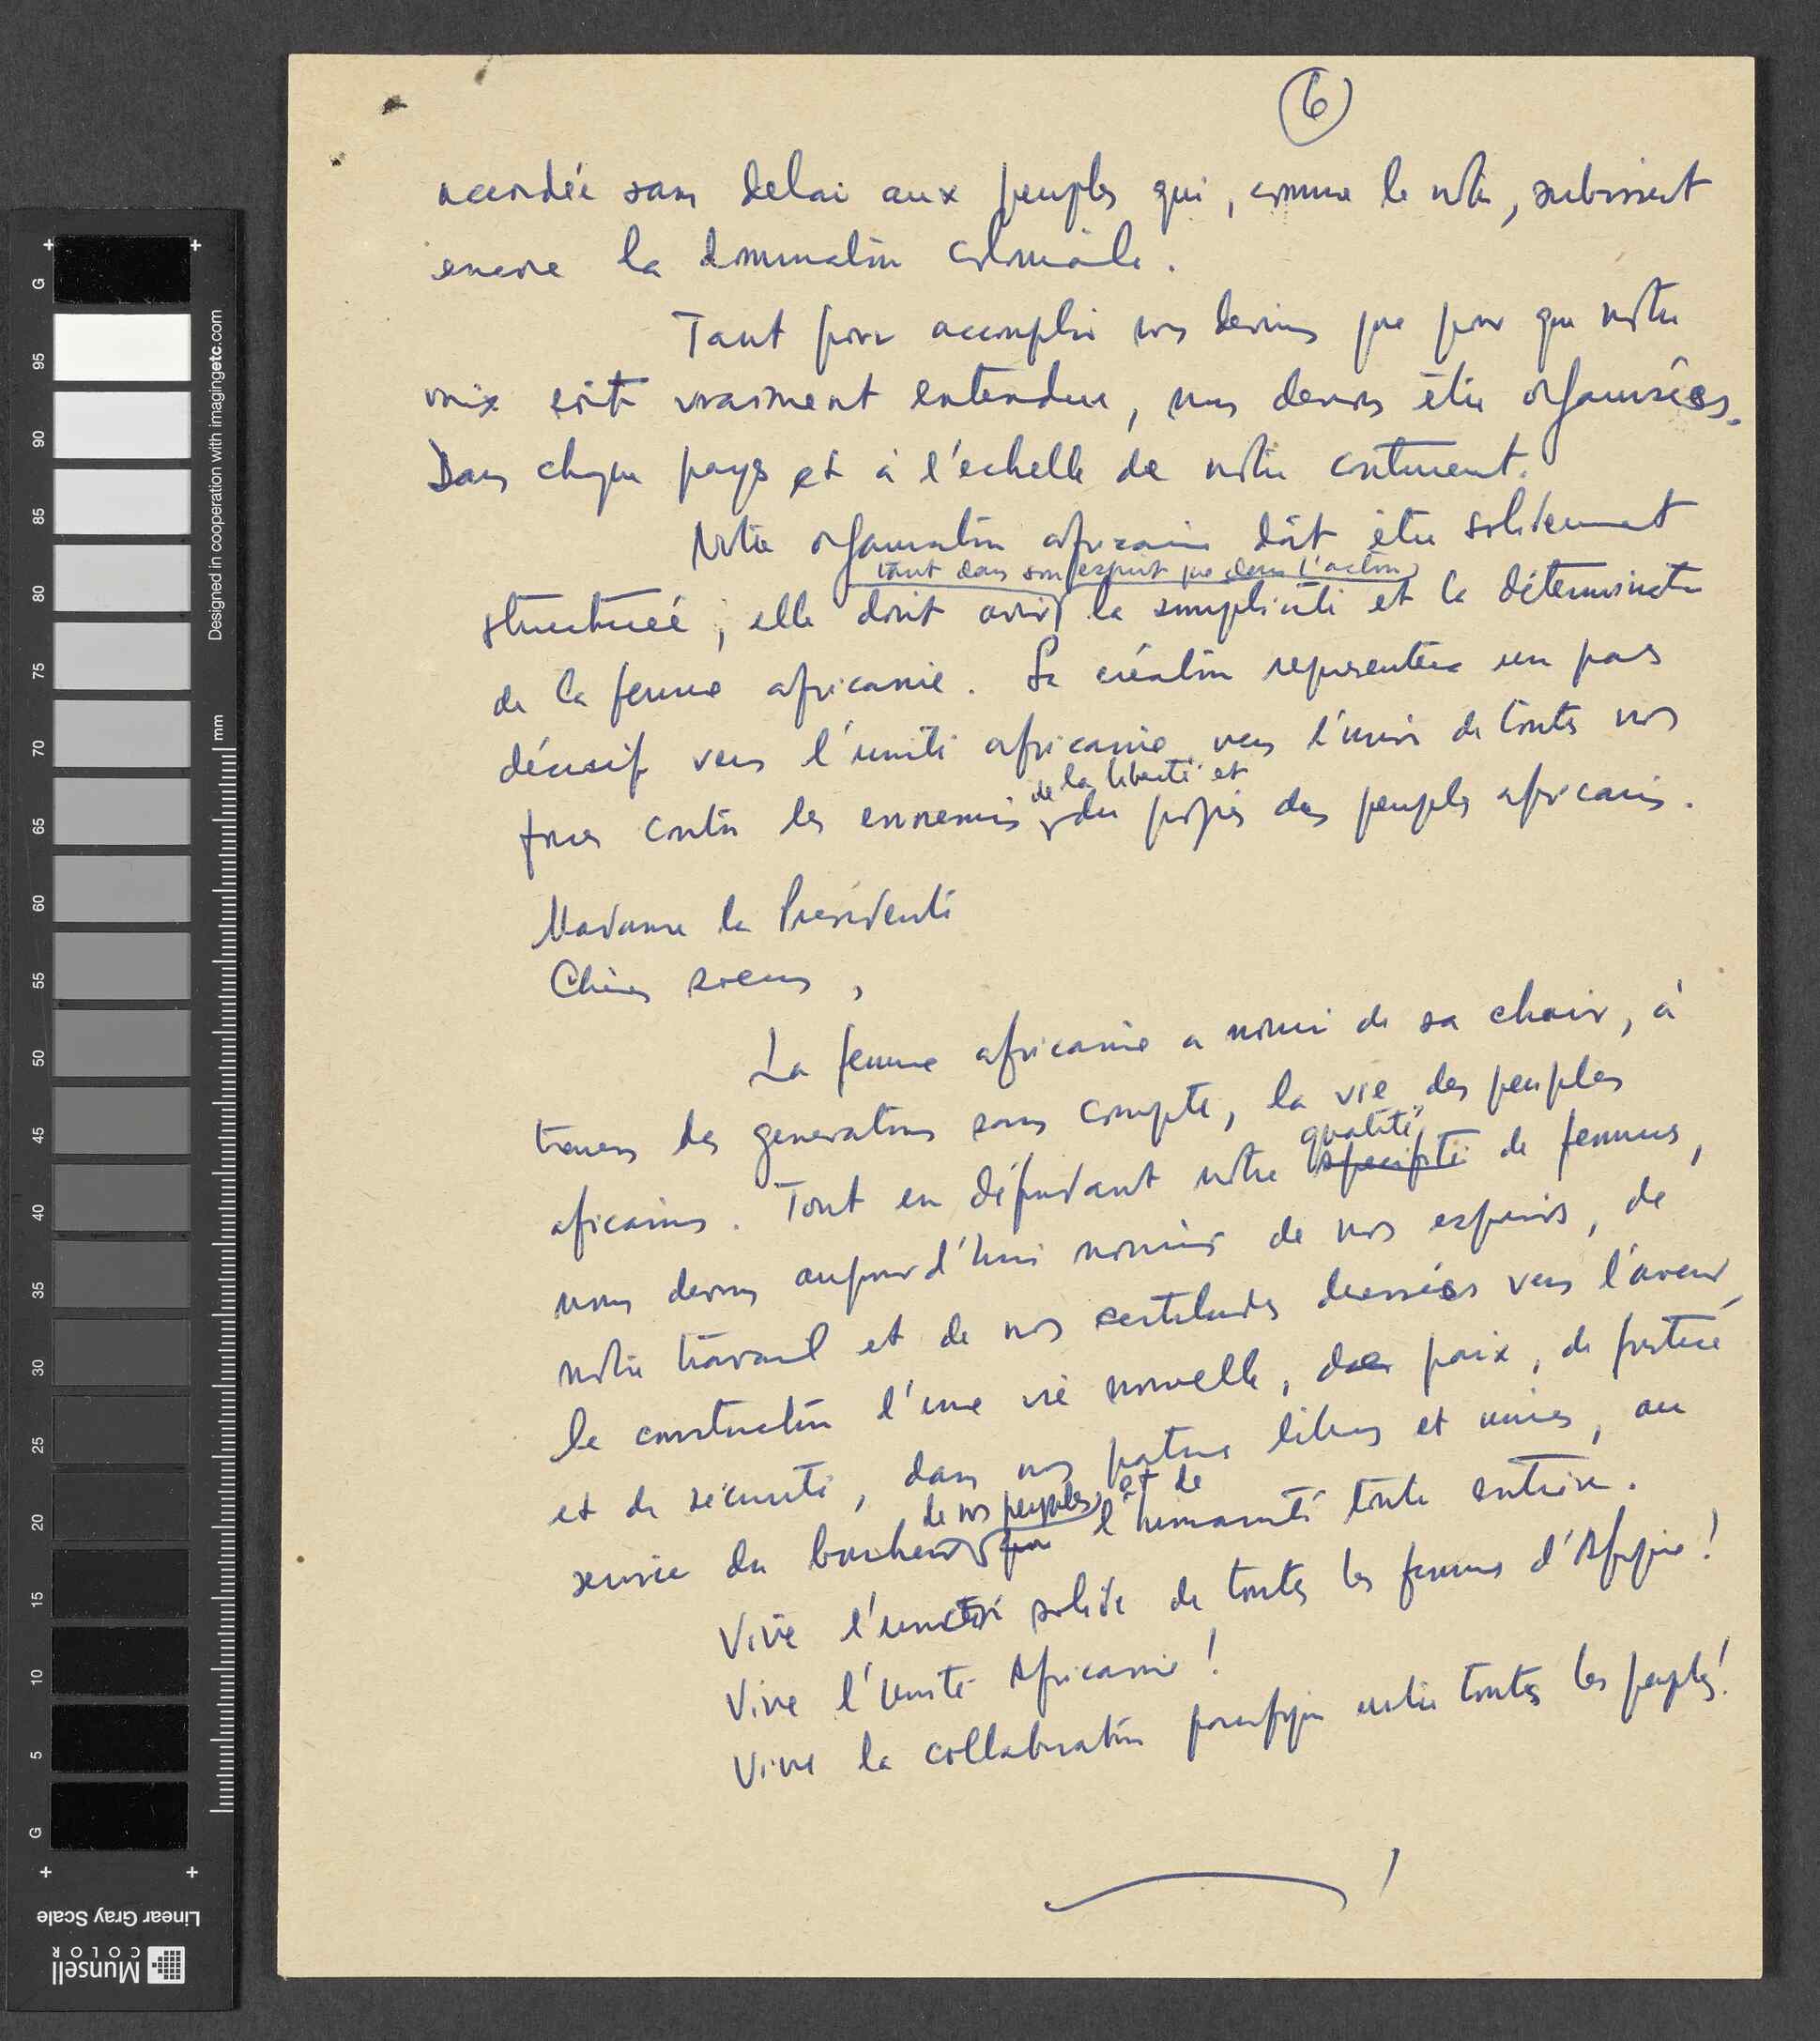 6
accordée sans delai aux peuples qui, comme le notre, subissent
encore la domination coloniale.
Tant pour accomplir nos devoirs que pour que notre
voix soit vraiment entendue, nous devons être organisées.
Dans chaque pays et à l'echelle de notre continent.
Notre organisation africaine doit être solidement
tant dans son esprit que dans l'action
structureé, elle doit avoir la simplicité et la détermination
de la femme africaine. Sa création representera un pas
décisif vers l'unité africaine, vers l'union de toutes nos
de la liberté et
forces contre les ennemis du progrès des peuples africains.
Madame la Présidente
Chères soeurs,
La femme africaine a nourri de sa chair, à
travers des generations sans compte, la vie des peuples
qualité
africains. Tout en défendant notre de femmes,
nous devons aujourd'hui nourrir de nos espoirs, de
notre travail et de nos certitudes dressées vers l'avenir,
la construction d'une vie nouvelle, de paix, de justice
et de sécurité, dans nos patries libres et unies, au
de nos peuples et de
service du bonheur l'humanité toute entière.
Vive l'union solide de toutes les femmes d'Afrique!
Vive l'Unité Africaine!
Vive la collaboration pacifique entre toutes les peuples!
Designed in cooperation with imagingetc.com
mm
G 95 90 85 80 75 70 65 60 55 50 45 40 35 30 25 20 15 10 5 G
Linear Gray Scale
Munsell
COLOR